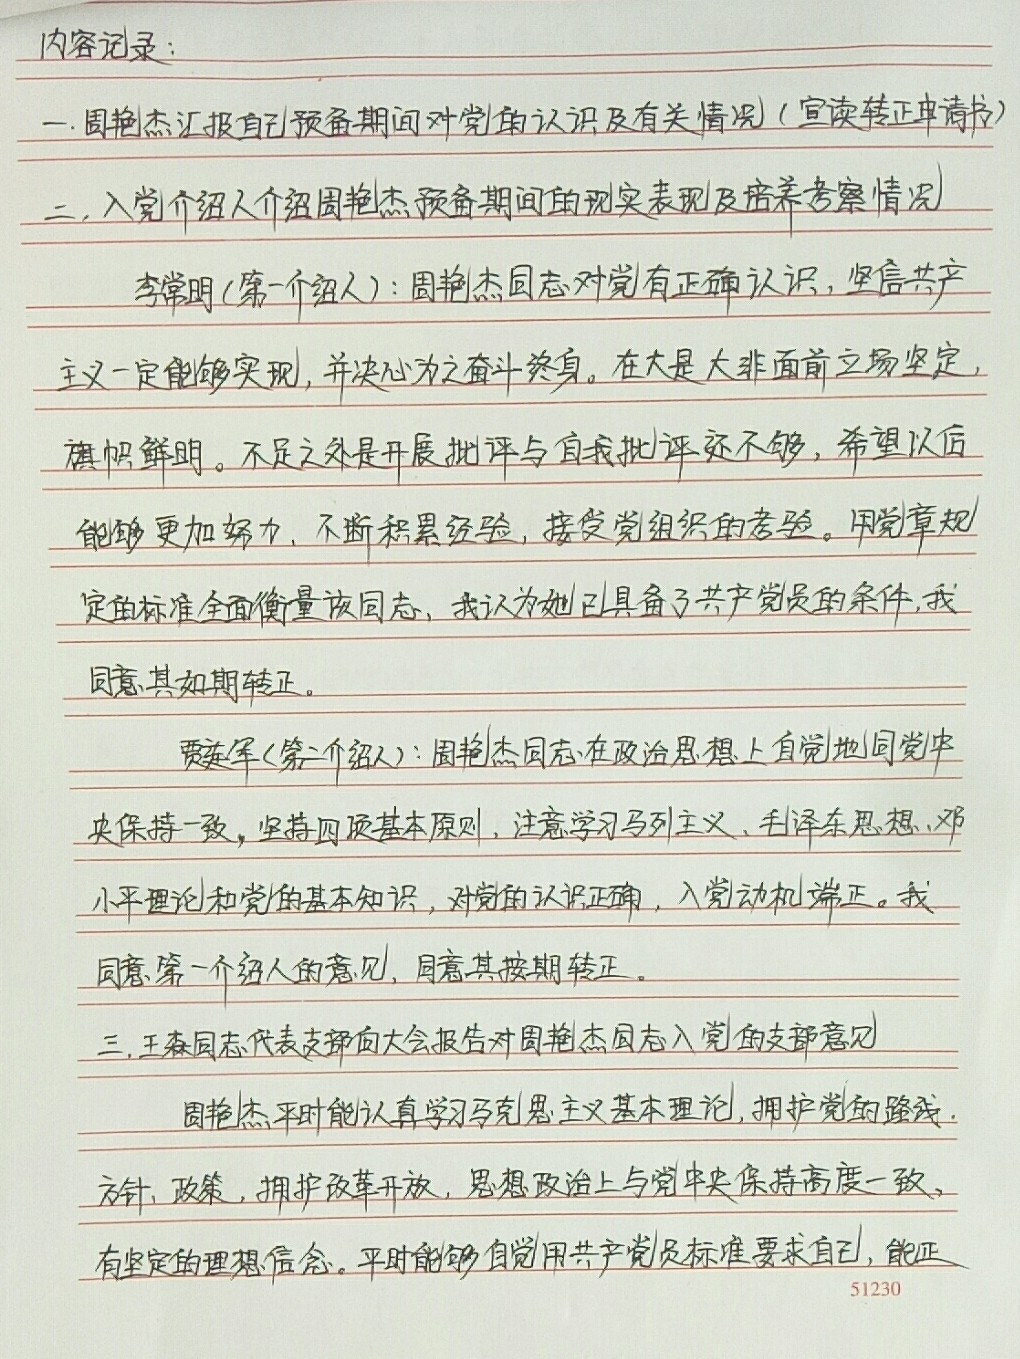 内容记录：
一.周艳杰汇报自己预备期间对党的认识及有关情况（宣读转正申请书）
二.入党介绍人介绍周艳杰预备期间的现实表现及培养考察情况
李常明（第一介绍人）：周艳杰同志对党有正确认识，坚信共产
主义一定能够实现，并决心为之奋斗终身。在大是大非面前立场坚定，
旗帜鲜明。不足之处是开展批评与自我批评还不够，希望以后
能够更加努力、不断积累经验，接受党组织的考验。用党章规
定的标准全面衡量该同志，我认为她已具备了共产党员的条件，我
同意其如期转正。
贾延军（第二介绍人）：周艳杰同志在政治思想上自觉地同党中
央保持一致，坚持四项基本原则，注意学习马列主义、毛泽东思想、邓
小平理论和党的基本知识，对党的认识正确，入党动机端正。我
同意第一介绍人的意见，同意其按期转正。
三.王森同志代表支部向大会报告对周艳杰同志入党的支部意见
周艳杰平时能认真学习马克思主义基本理论，拥护党的路线.
方针、政策，拥护改革开放，思想政治上与党中央保持高度一致，
有坚定的理想信念。平时能够自觉用共产党员标准要求自己，能正
51230